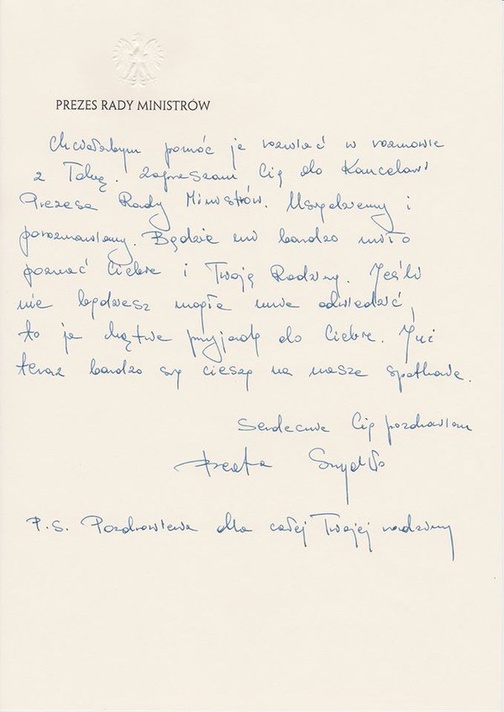 PREZES RADY MINISTRÓW
Chciałabym pomóc je rozwiać w rozmowie
z Tobą. Zapraszam Cię do Kancelarii
Prezesa Rady Ministrów. Usiądziemy i
porozmawiamy. Będzie mi bardzo miło
poznać Ciebie i Twoją Rodzinę. Jeśli
nie będziesz mogła mnie odwiedzić,
to ja chętnie przyjadę do Ciebie. Już
teraz bardzo się cieszę na nasze spotkanie.
Serdecznie Cię pozdrawiam
Beata Szydło
P.S. Pozdrowienia dla całej Twojej rodziny